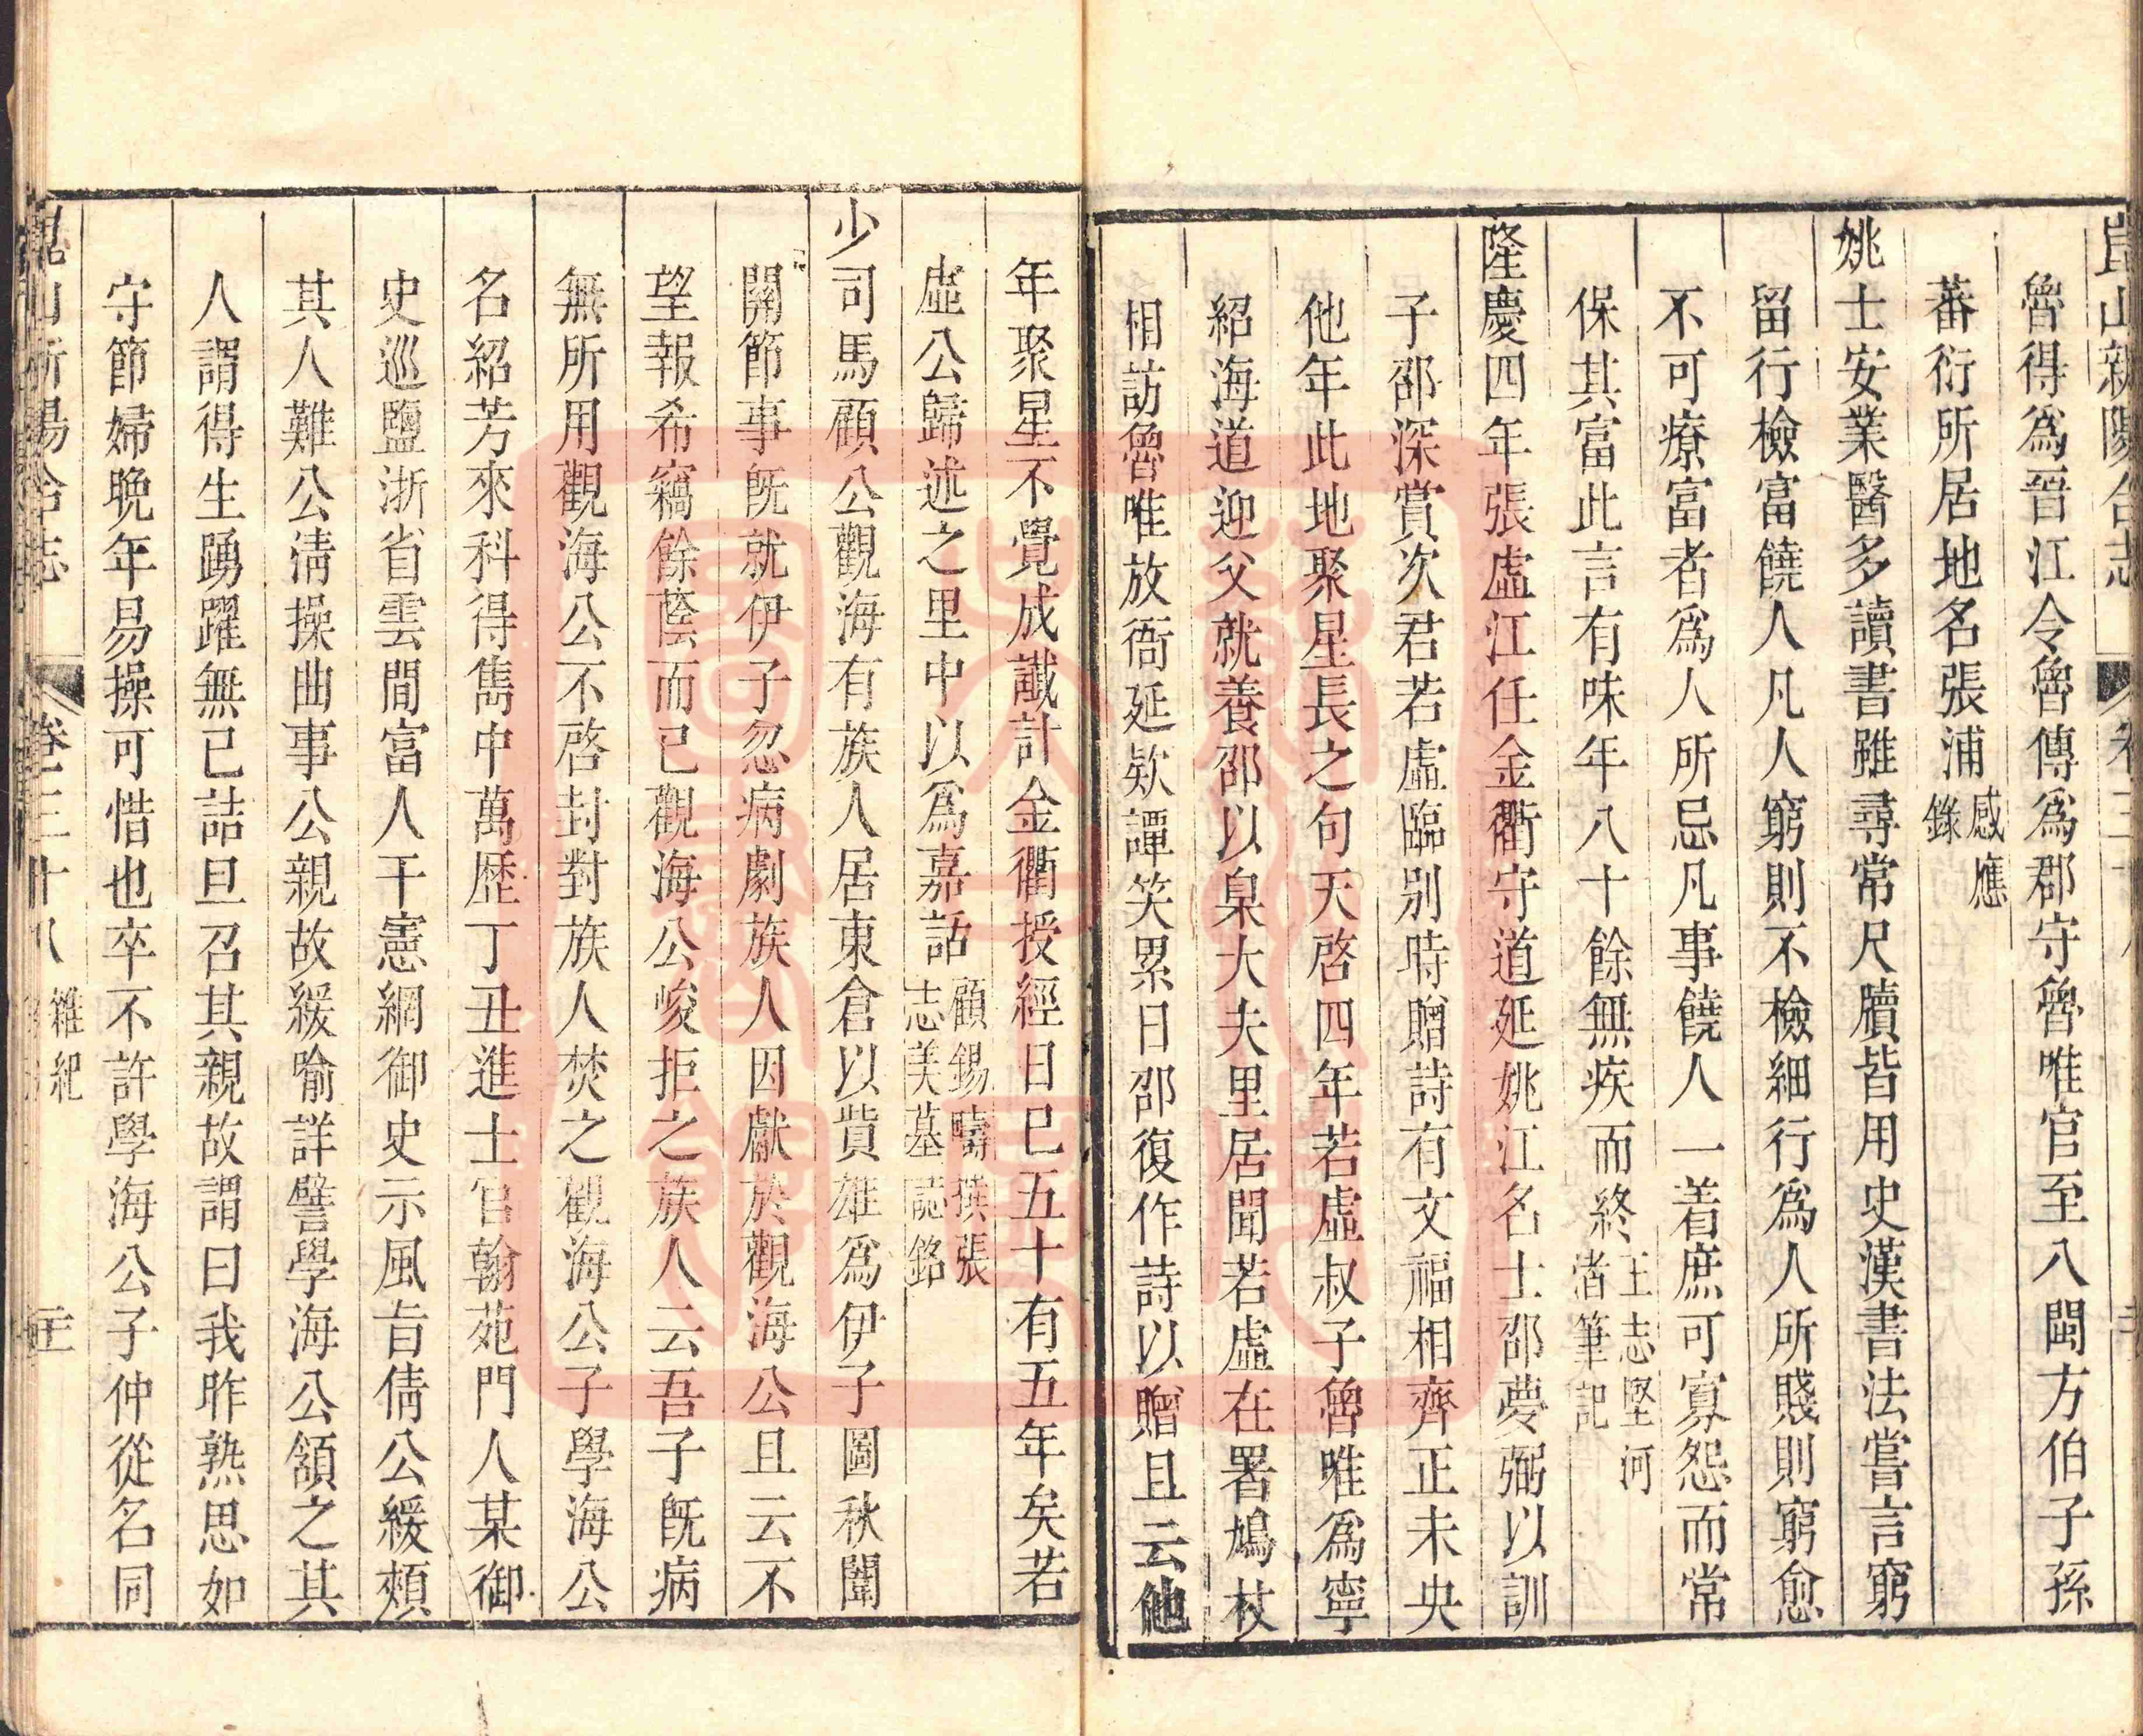 崑山新陽合志
魯得爲晉江令魯傳爲郡守魯唯官至八閩方伯子孫
蕃衍所居地名張浦感應錄
姚士安業醫多讀書雖尋常尺牘皆用史漢書法嘗言窮
留行檢富饒人凡人窮則不檢細行爲人所賤則窮愈
不可療富者爲人所忌凡事饒人一着庶可寡怨而常
保其富此言有味年八十餘無疾而終王志堅河渚筆記
隆慶四年張虛江任金衢守道延姚江名士邵夢弼以訓
子邵深賞次君若虛臨別時贈詩有文福相齊正未央
他年此地聚星長之句天啓四年若虛叔子魯唯爲寧
紹海道迎父就養邵以臬大夫里居聞若虛在署鳩杖
相訪魯唯放衙延欵譚笑累日邵復作詩以贈且云他
年聚星不覺成讖計金衢授經日巳五十有五年矣若
虛公歸述之里中以爲嘉話顧錫疇撰張志美墓誌銘
少司馬顧公觀海有族人居東倉以貲雄爲伊子圖秋闈
關節事既就伊子忽病劇族人因獻於觀海公且云不
望報希竊餘蔭而已觀海公峻拒之族人云吾子既病
無所用觀海公不啓封對族人焚之觀海公子學海公
名紹芳來科得雋中萬歷丁丑進士官翰苑門人某御
史巡鹽浙省雲間富人干憲網御史示風旨倩公緩頰
其人難公清操曲事公親故緩喻詳譬學海公頷之其
人謂得生踴躍無已詰旦召其親故謂曰我昨熟思如
守節婦晩年易操可惜也卒不許學海公子仲從名同
崑山新陽合志
卷三十八
雜紀